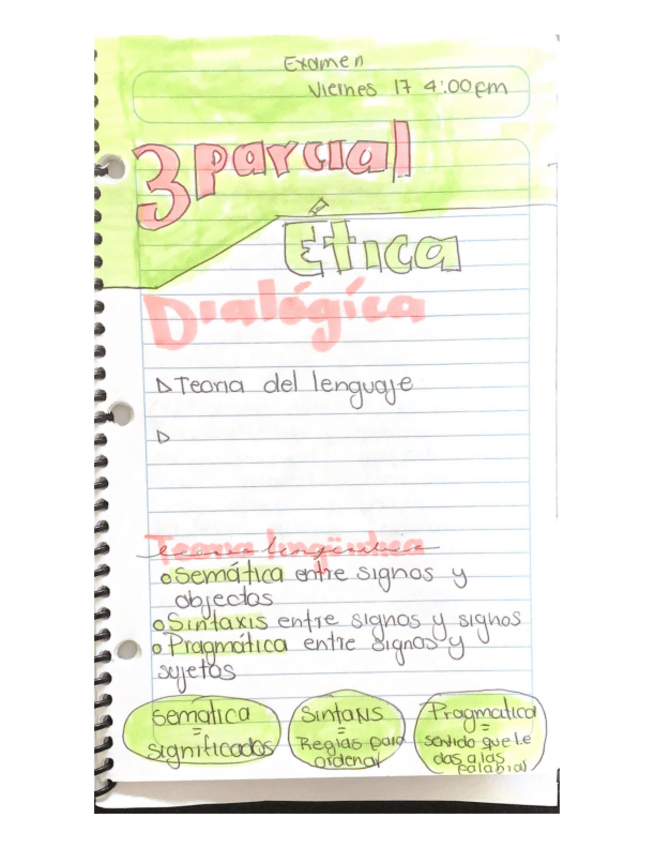 Examen
Viernes 17 4:00pm
3 parcial
Ética
Dialógica
Teoria del lenguaje
Teoria lingüistica
Semática entre signos y
objectos
Sintaxis entre signos y signos
Pragmática entre signos y
sujetos
Sematica
=
significados
Sintaxis
=
Reglas para
ordenar
Pragmatica
=
sentido que le
das a las
palabras